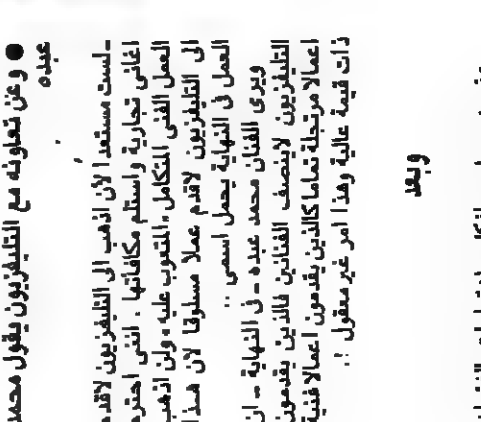 ● وعن تعاونه مع التليفزيون يقول محمد
عبده
ـ لست مستعدا لأن اذهب الى التليفزيون لاقدم
اغانى تجارية واستلم مكافاتها . اننى احترم
العمل الفنى المتكامل ، المتعوب عليه ، ولن اذهب
الى التليفزيون لاقدم عملا مسلوقا لان هذا
العمل فى النهاية يحمل اسمى ..
ويرى الفنان محمد عبده ـ فى النهاية ـ ان
التليفزيون لاينصف الفنانين فالذين يقدمون
اعمالا مرتجلة تماما كالذين يقدمون اعمالا فنية
ذات قيمة عالية وهذا امر غير معقول ..
وبعد